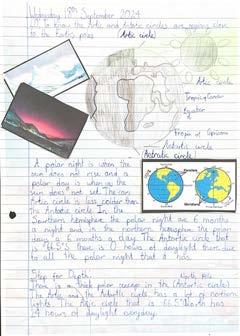 Wednesday 18th September 2024
LO: To know the Artic and Antartic circles are regions close
to the Earth's poles. (Artic circle)
Artic circle
Tropic of Cancer
Equator
Tropic of Capricorn
Antartic circle
(Antratic circle)
A polar night is when the
sun does not rise and a
polar day is when the
sun does not set. The
Artic circle is less colder than
the Antartic circle. In the
Southern hemisphere the polar night are 6 months
a night and in the northern hemisphere the polar
days a 6 months a day. The Antarctic circle that
is 66.5° there is 0 hours of daylight there due
to all the polar night that it has.
Step for Depth:
North Pole
There is a thick polar icecap in the (Antarctic circle)
The Artic and the Antartic circle has a lot of northern
lights. The Artic circle that is 66.5° North has
24 hours of daylight everyday.